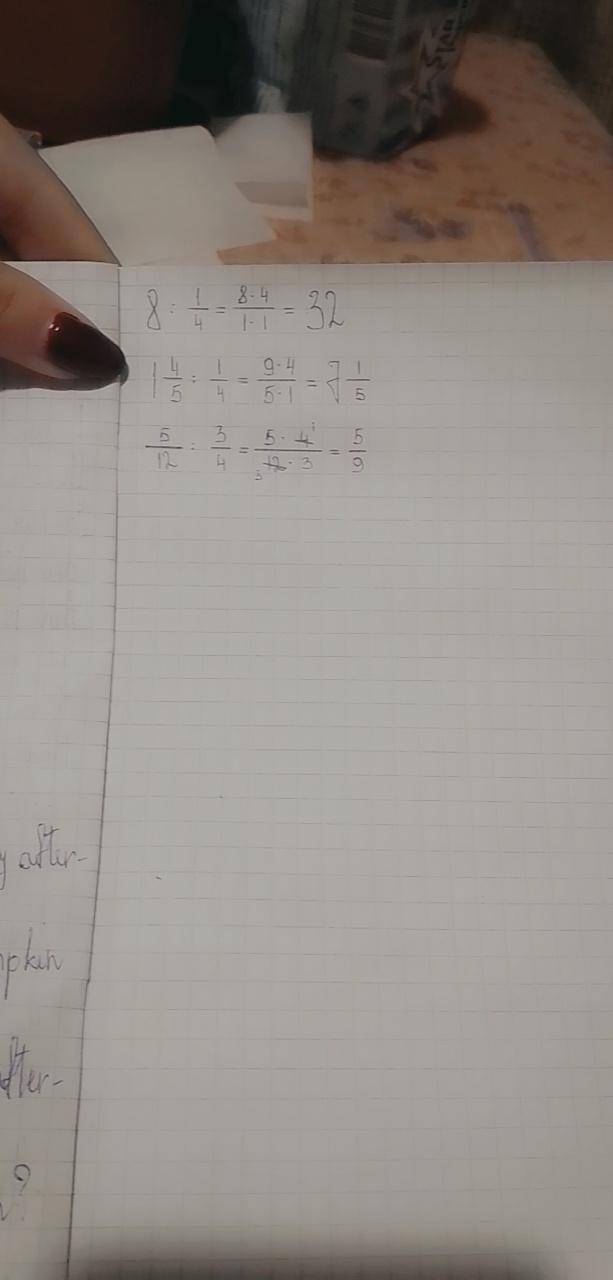 8 : 1/4 = 8·4/1·1 = 32
1 4/5 : 1/4 = 9·4/5·1 = 7 1/5
5/12 : 3/4 = 5·4 1/3 12·3 = 5/9
after-
after-
?